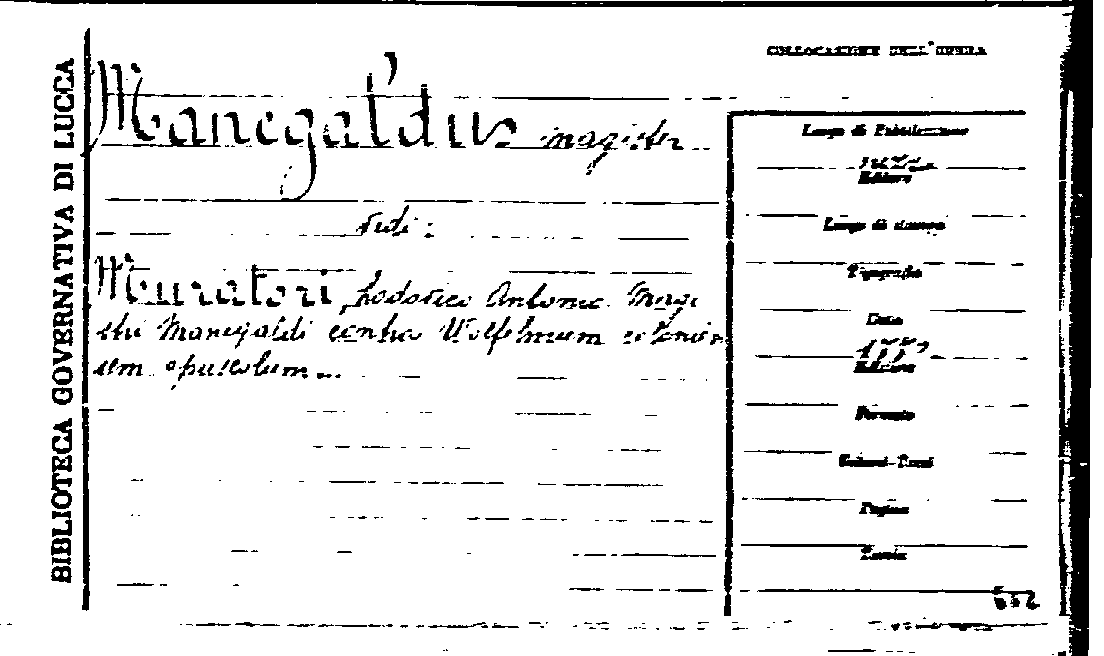 BIBLIOTECA GOVERNATIVA DI LUCCA
COLLOCAZIONE DELL'OPERA
Manegaldus magister
vedi:
Muratori, Lodovico Antonio. Magi
stri Manegaldi contra Wolfelmum colonien
sem opusculum..
Luogo di Pubblicazione
Editore
Luogo di stampa
Tipografia
Data
Edizione
Formato
Volumi-Tomi
Pagine
Tavole